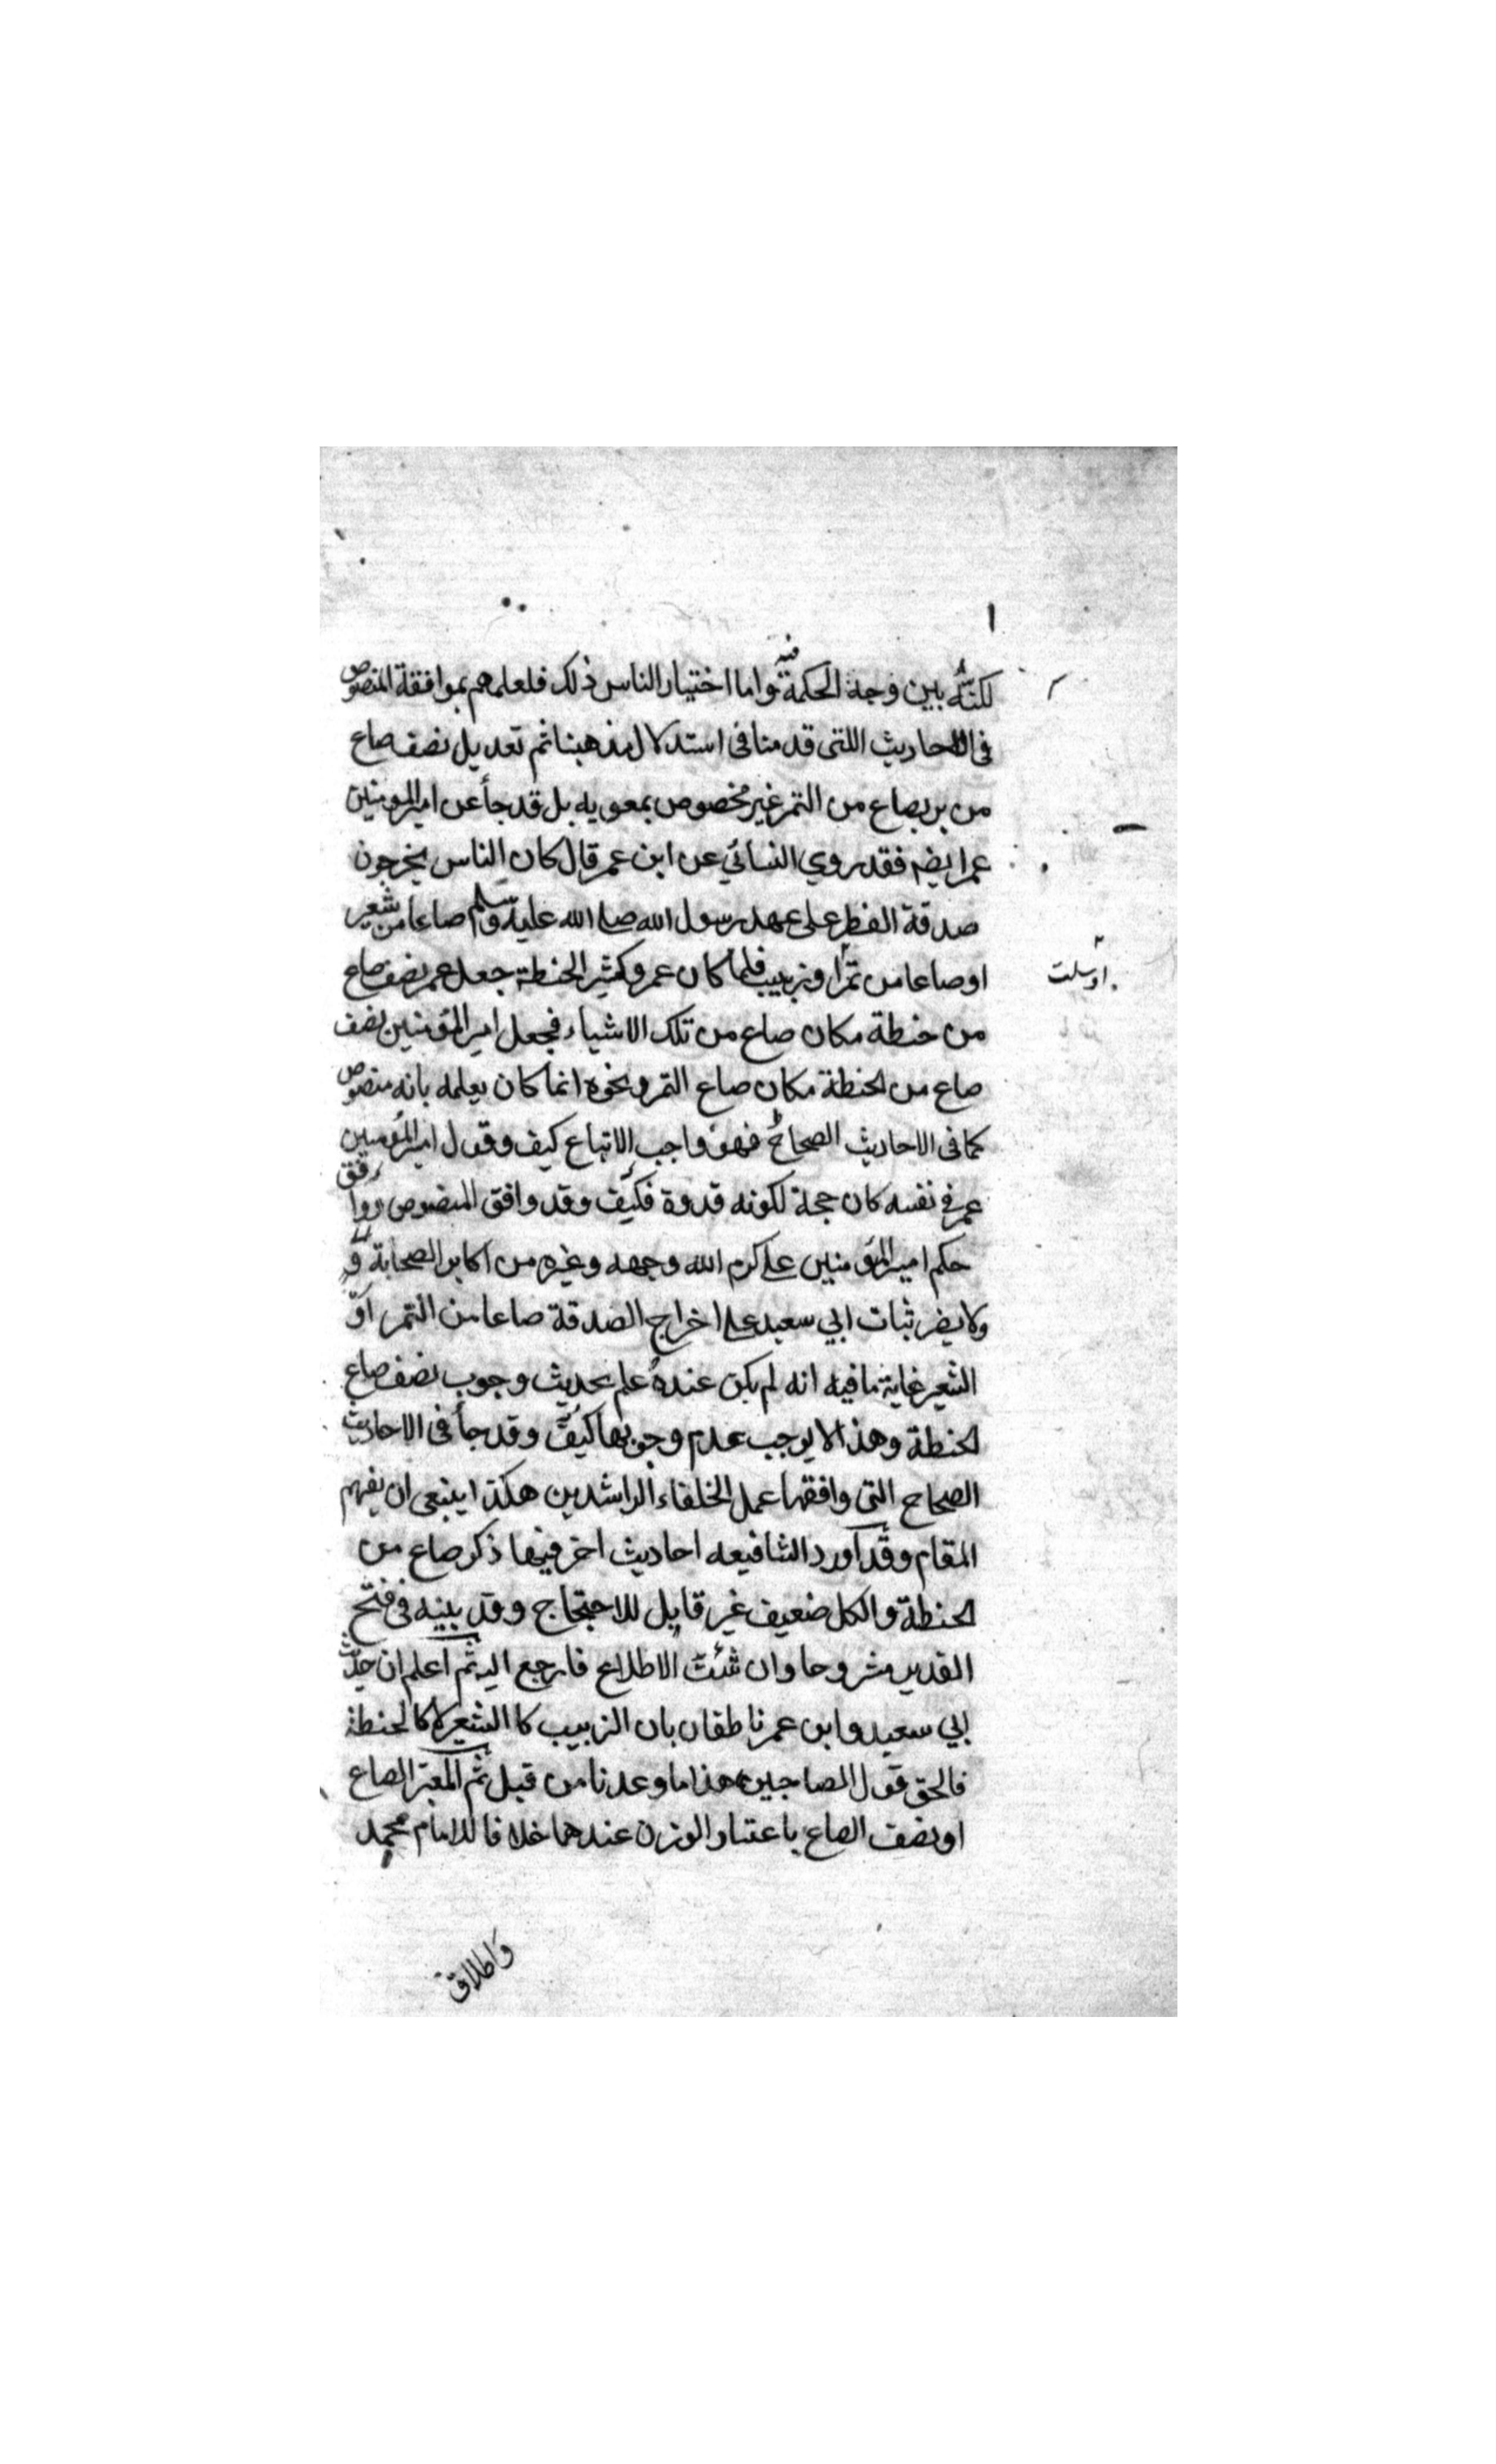 لكنه بين وجه الحكمة فيه واما اختيار الناس ذلك فلعلمهم بموافقة المنصوص
في الاحاديث اللتى قدمنا فى استدلال مذهبنا ثم تعديل نصف صاع
من بر بصاع من التمر غير مخصوص بمعويه بل قد جأ عن امير المومنين
عمر ايضه فقد روي النسائي عن ابن عمر قال كان الناس يخرجون
صدقة الفطر على عهد رسول الله صلى الله عليه وسلم صاعا من شعير
او صاعا من تمر او زبيب فلما كان عمر وكثير الحنطة جعل عمر نصف صاع
اوسلت
من حنطة مكان صاع من تلك الاشياء فجعل امير المؤمنين نصف
صاع من الحنطة مكان صاع التمر ونحوه انما كان بعلمه بانه منصوص
كما فى الاحاديث الصحاح فهو واجب الاتباع كيف وقول امير المؤمنين
عمر في نفسه كان حجة لكونه قدوة فكيف وقد وافق المنصوص ووافق
حكم امير المؤمنين علي كرم الله وجهه وغيره من اكابر الصحابة و
ولا يضر ثبات ابي سعيد على اخراج الصدقة صاعا من التمر او
الشعير غاية ما فيه انه لم يكن عنده علم بحديث وجوب نصف صاع
الحنطة وهذا لا يوجب عدم وجوبها كيف وقد جأ فى الاحاديث
الصحاح التى وافقها عمل الخلفاء الراشدين هكذا ينبغى ان يفهم
المقام وقد اورد الشافيعه احاديث اخر فيها ذكر صاع من
الحنطة والكل ضعيف غير قابل للاحتجاج وقد بينه فى فتح
القدير مشروحا وان شئت الاطلاع فارجع اليه ثم اعلم ان حديث
ابي سعيد وابن عمر ناطقان بان الزبيب كا الشعير لا كالحنطة
فالحق قول الصاحبين هذا ما وعدنا من قبل ثم المعتبر الصاع
او نصف الصاع باعتبار الوزن عندهما خلافا للامام محمد
واطلاق